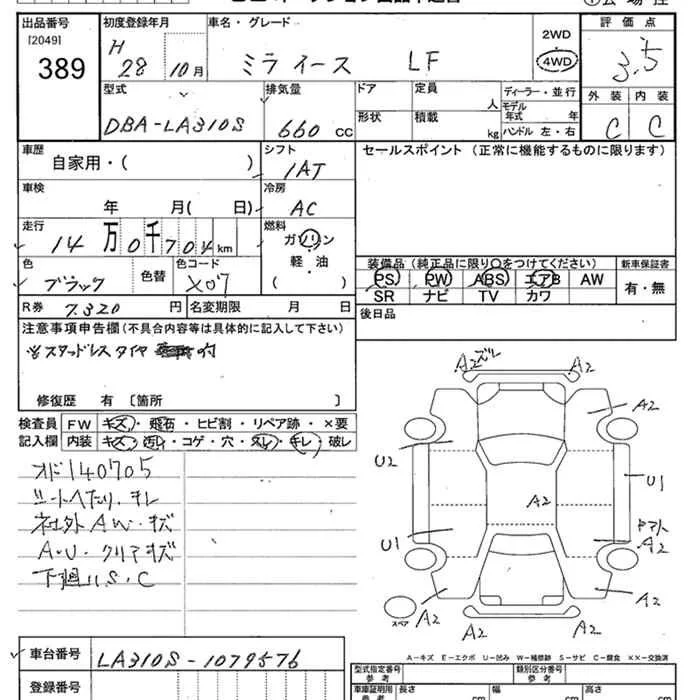 出品番号 初度登録年月 車名・グレード 評価点
[2049] 389 H 28 10月 ミライース LF 2WD 4WD 3.5
型式 排気量 ドア 定員 人 ディーラー・並行 外装 内装
DBA-LA310S 660 CC 形状 積載 kg モデル年式 年 ハンドル 左・右 C C
車歴 シフト セールスポイント (正常に機能するものに限ります)
自家用・( ) 1AT
車検 冷房
年 月( 日) AC
走行 燃料
14 万 0 千 7 0 4 km ガソリン
軽・油
( )
色 色替 色コード 装備品 (純正品に限り○をつけてください) 新車保証書
ブラック X07 PS PW ABS エアB AW 有・無
SR ナビ TV カワ
R券 7.320 円 名変期限 月 日 後日品
注意事項申告欄(不具合内容等は具体的に記入して下さい)
スタッドレスタイヤ 付
修復歴 有 [箇所 ]
検査員 FW キズ・飛石・ヒビ割・リペア跡・×要
記入欄 内装 キズ・汚れ・コゲ・穴・スレ・キレ・破レ
オド140705
シートヘたり、キレ
社外AW・キズ
A・U・クリアキズ
下廻りS・C
A2ズレ A2
A2
U2
A2
U1
U1
A2
A2
A2
スペア A2
A2
A-キズ E-エクボ U-凹み W-補修跡 S-サビ C-腐食 XX-交換済
車台番号 LA310S-1079576
登録番号
型式指定番号 参考 類別区分番号 参考
車庫証明用 参考 長さ cm 幅 cm 高さ cm